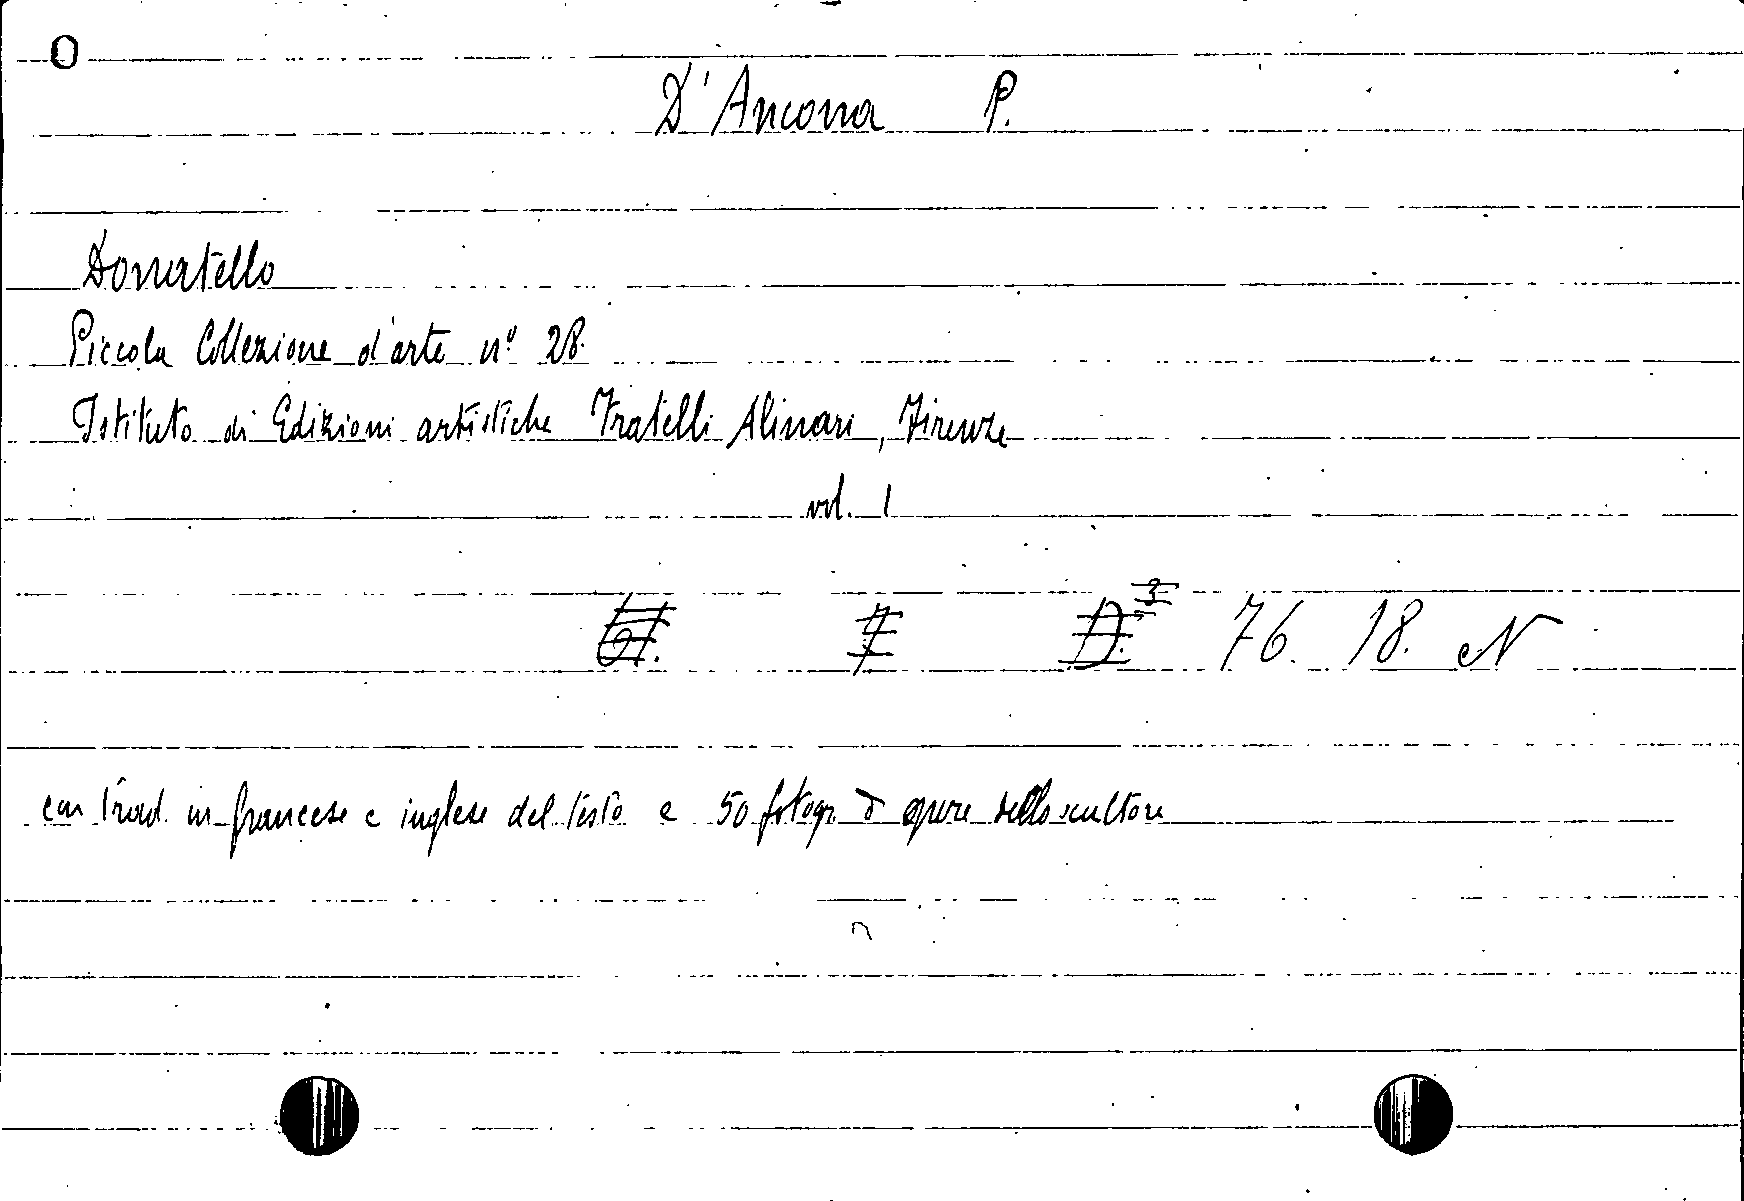 O
D'Ancona P.
Donatello
Piccola Collezione d'arte n° 28.
Istituto di Edizioni artistiche Fratelli Alinari, Firenze
vol. 1
7 D.3 76. 18. N
con trad. in francese e inglese del testo e 50 fotogr. di opere dello scultore